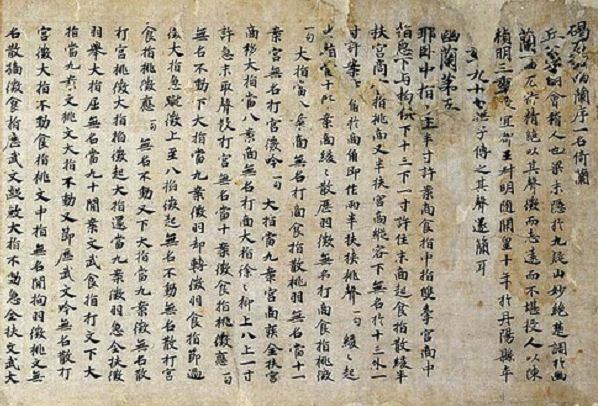 碣石調幽蘭序一名倚蘭
丘公字明會稽人也梁末隱於九疑山妙絶楚調於幽
蘭一曲尤特精絶以其聲微而志遠而不堪授人以陳
禎明三年授宜都王叔明隨開皇十年於丹陽縣卒
年九十七無子傳之其聲遂簡耳
幽蘭第五
耶臥中指半寸許案商食指中指雙牽宮商中
指急下與拘俱下十三下一寸許住末商起食指散緩半
扶宮商食指挑商又半扶宮商縱容下無名於十三外一
寸許案商角於商角即作兩半扶挾挑聲一句緩緩起
無名當十案商緩緩散歷羽徵無名打商食指挑徵
一句大指當八案商無名打商食指散挑羽無名當十一
案宮無名打宮徵吟一句大指當九案宮商疾全扶宮
商移大指當八案商無名打商大指徐徐抑上八上一寸
許急末取聲散打宮無名當十案徵食指挑徵應一句
無名不動下大指當九案徵羽却轉徵羽食指節過
徐大指急蹴徵上至八抬徵起無名不動無名散打宮
食指挑徵應一句無名不動又下大指當九案徵無名散
打宮挑徵大指抬徵起大指還當九案徵羽急全扶徵
羽舉大指屈無名當九十間案文武食指打文下大
指當九案文挑文大指不動又節歷武文吟無名散打
宮徵大指不動食指挑文中指無名間拘羽徵挑文無
名散摘徵食指歷武文蠲武大指不動急全扶文武大